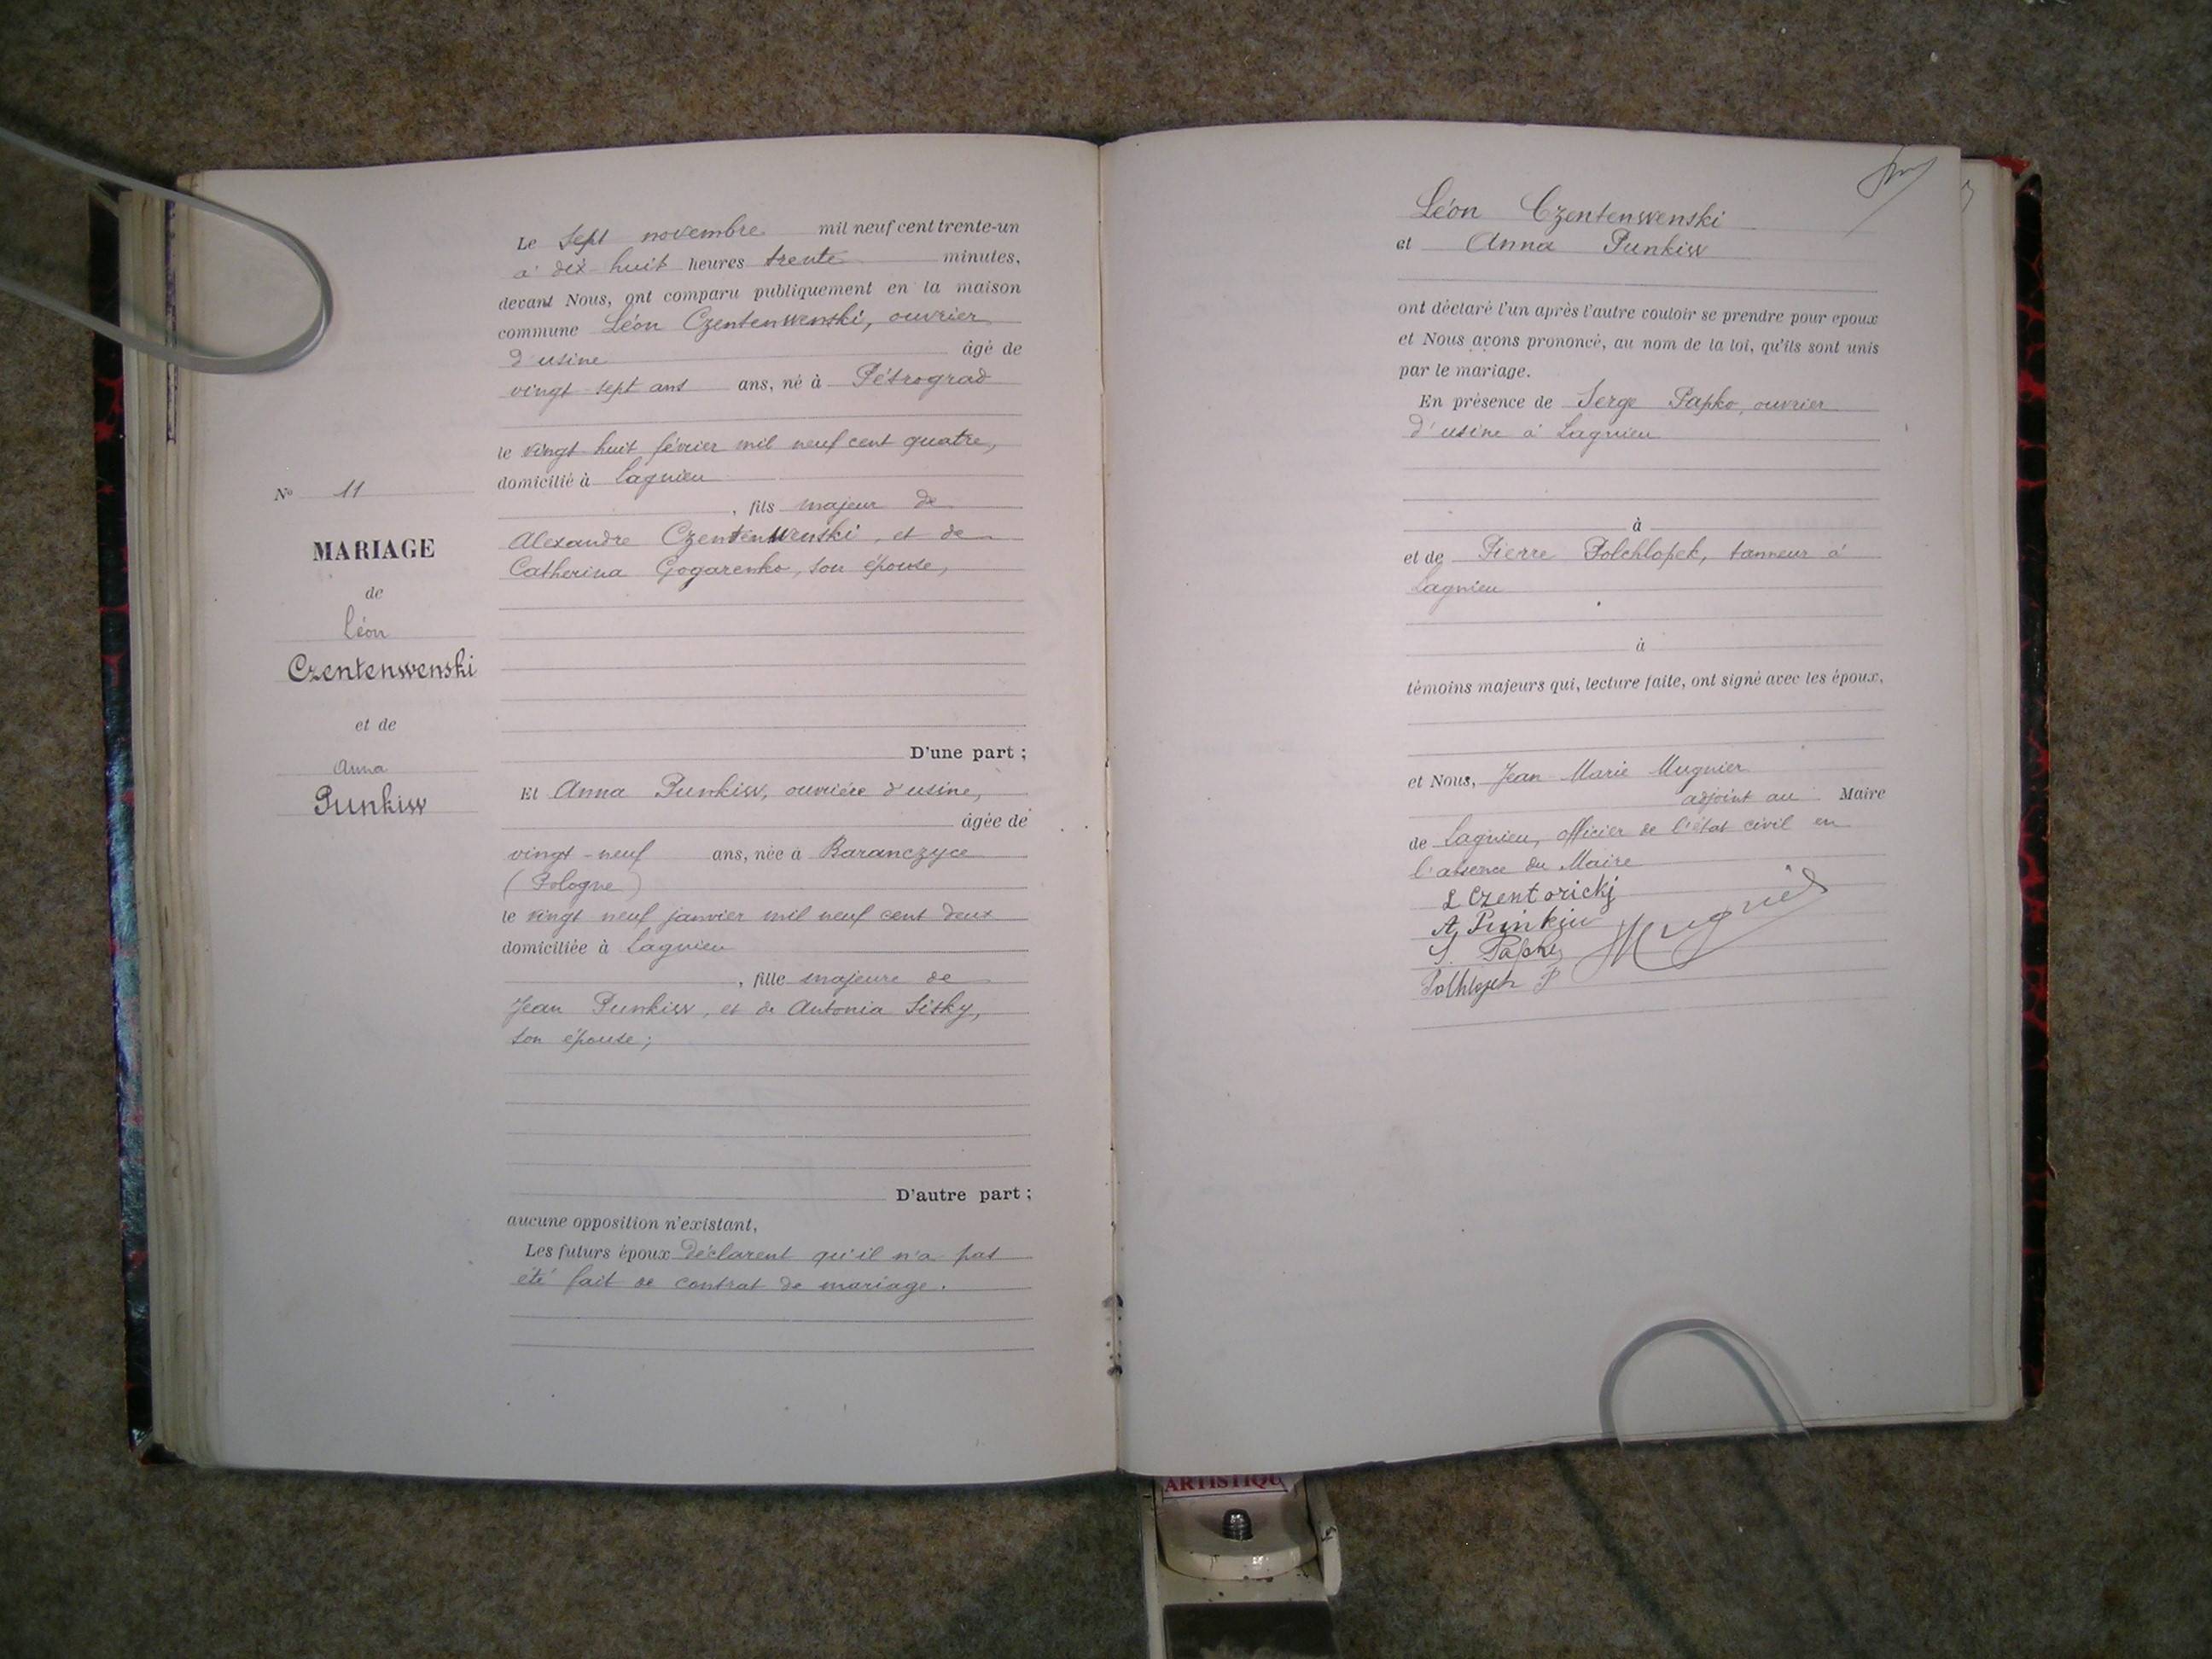 N° 11
MARIAGE
de
Léon
Czentenwenski
et de
Anna
Punkiw
Le sept novembre mil neuf cent trente-un
à dix-huit heures trente minutes,
devant Nous, ont comparu publiquement en la maison
commune Léon Czentenwenski, ouvrier
d'usine âgé de
vingt-sept ans ans, né à Pétrograd
le vingt-huit février mil neuf cent quatre,
domicilié à Lagnieu
, fils majeur de
Alexandre Czentenwenski, et de
Catherina Gogarenko, son épouse,
D'une part ;
Et Anna Punkiw, ouvrière d'usine,
âgée de
vingt-neuf ans, née à Baranczyce
(Pologne)
le vingt neuf janvier mil neuf cent deux
domiciliée à Lagnieu
, fille majeure de
Jean Punkiw, et de Antonia Sisky,
son épouse ;
D'autre part ;
aucune opposition n'existant,
Les futurs époux déclarent qu'il n'a pas
été fait de contrat de mariage.
Léon Czentenwenski
et Anna Punkiw
ont déclaré l'un après l'autre vouloir se prendre pour epoux
et Nous avons prononcé, au nom de la loi, qu'ils sont unis
par le mariage.
En présence de Serge Papko, ouvrier
d'usine à Lagnieu
à
et de Pierre Polchlopek, tanneur à
Lagnieu
à
témoins majeurs qui, lecture faite, ont signé avec les époux,
et Nous, Jean Marie Mugnier
adjoint au Maire
de Lagnieu, officier de l'état civil en
l'absence du Maire
L Czentorickj
A Punkiw
S. Papko
Mugnier
ARTISTIQU